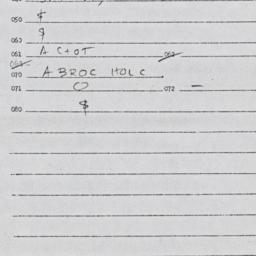 050 $
060 $
061 A C+OT 062
070 A BROC HOLC
071 O 072 —
080 $